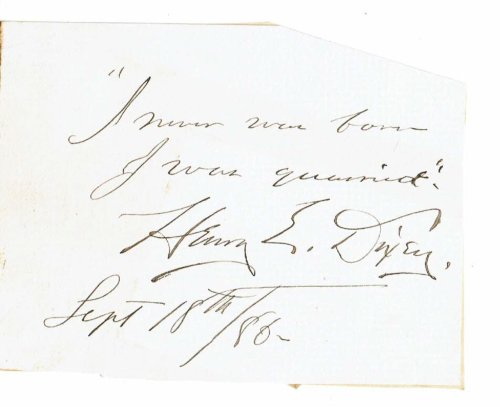 "I never was born
I was quarried".
Henry E. Dixey.
Sept 18th/86-